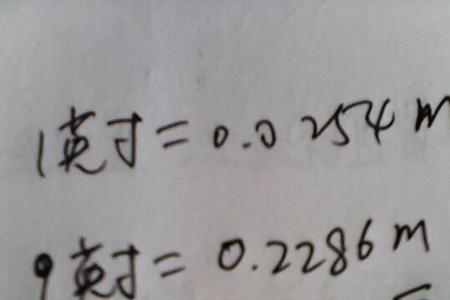 1英寸=0.0254m
9英寸=0.2286m